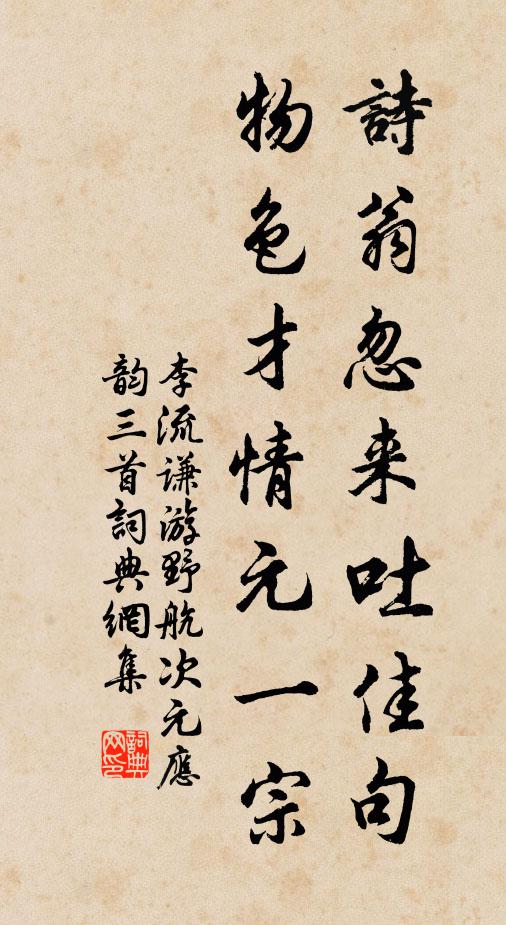 詩翁忽来吐佳句
物色才情元一宗
李流謙游野航次元應
韵三首詞典網集
詞典网印